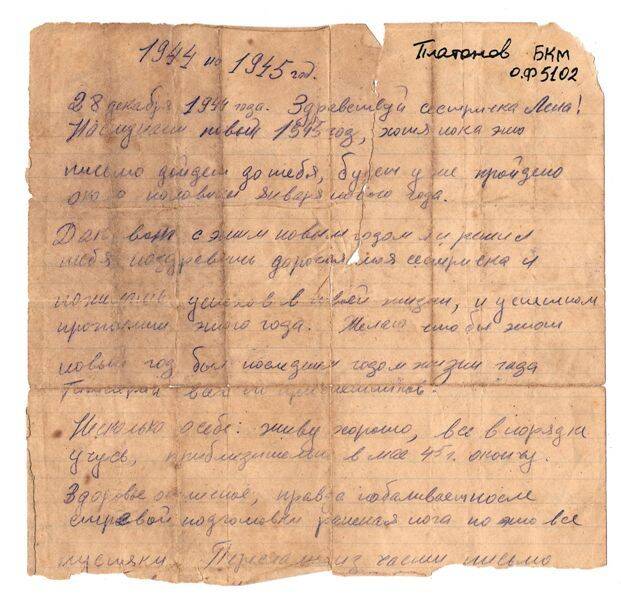 1944 по 1945 год.
Платонов БКМ
О.Ф 5102
28 декабря 1944 года. Здравствуй сестричка Лена!
Наступает новый 1945 год, хотя пока это
письмо дойдет до тебя, будет уже пройдено
около половины января нового года.
Так вот с этим новым годом я и решил
тебя поздравить дорогая моя сестричка и
пожелать успехов в твоей жизни, и успешном
прожитии этого года. Желаю чтобы этот
новый год был последним годом жизни гада
Гитлера
Несколько о себе: живу хорошо, все в порядке
учусь, приблизительно в мае 45 г. окончу.
Здоровье отличное, правда побаливает после
строевой подготовки раненая нога но это все
пустяки. из части письмо